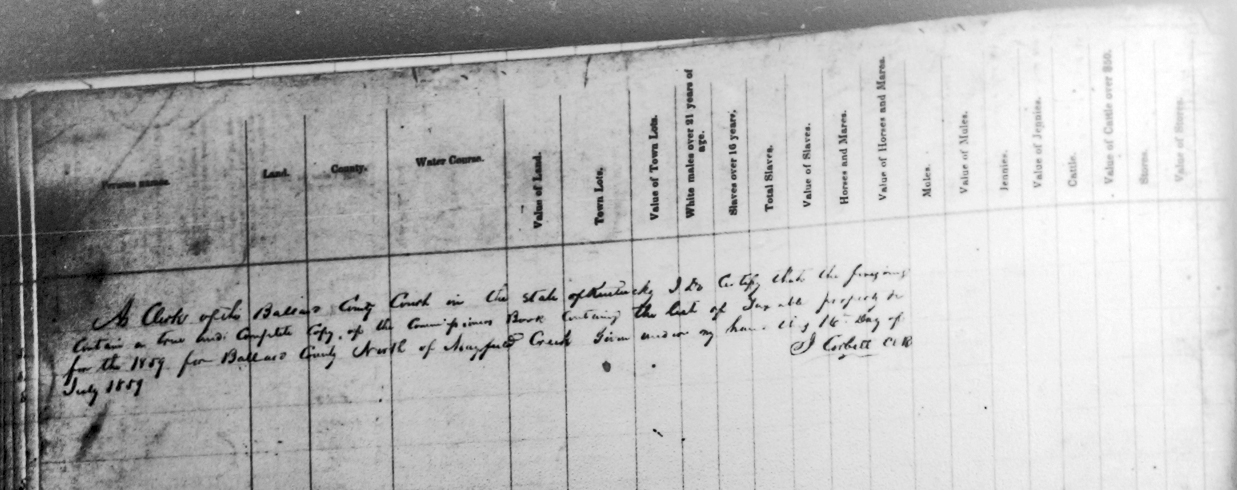 Persons names.
Land.
County.
Water Course.
Value of Land.
Town Lots.
Value of Town Lots.
White males over 21 years of age.
Slaves over 16 years.
Total Slaves.
Value of Slaves.
Horses and Mares.
Value of Horses and Mares.
Mules.
Value of Mules.
Jennies.
Value of Jennies.
Cattle.
Value of Cattle over $50.
Stores.
Value of Stores.
As Clerk of the Ballard County Court in the State of Kentucky I Do Certify that the foregoing
Contain a true and Complete Copy of the Commissioners Book Containing the list of Taxable property in
for the 1859 for Ballard County North of Mayfield Creek Given under my hand this 16 Day of
July 1859
J Corbett Clk